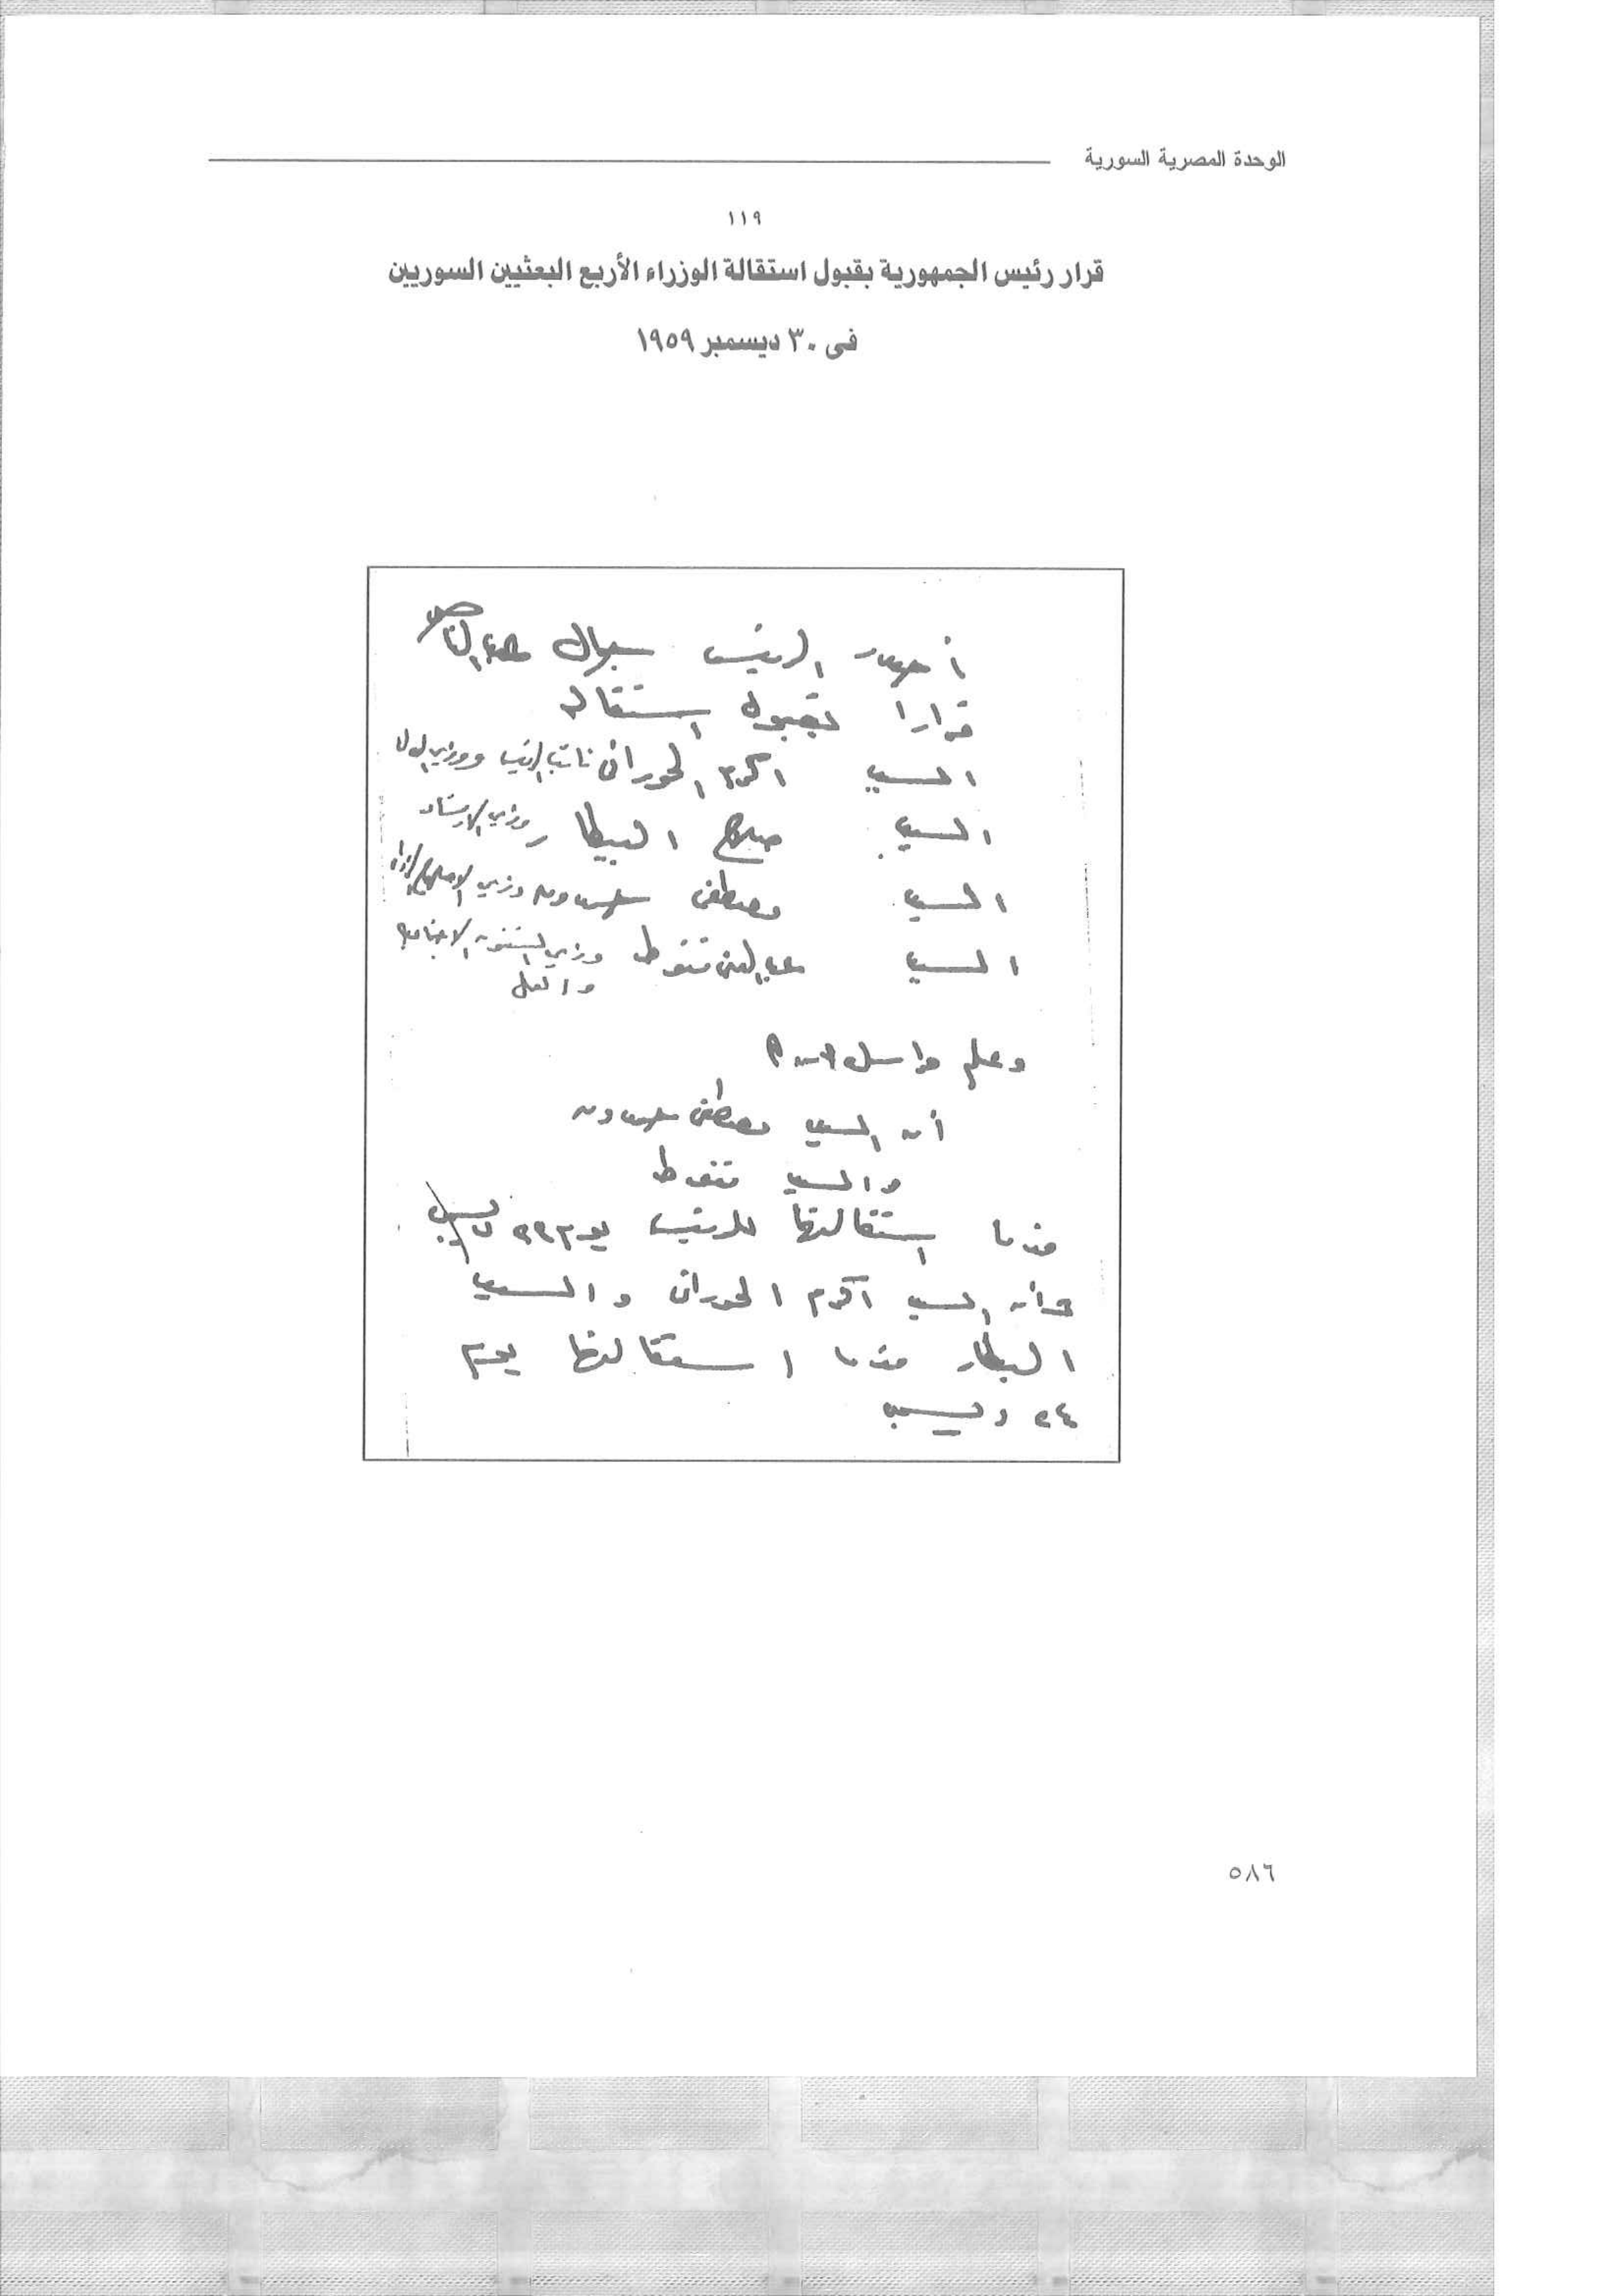 الوحدة المصرية السورية
١١٩
قرار رئيس الجمهورية بقبول استقالة الوزراء الأربع البعثيين السوريين
فى ٣٠ ديسمبر ١٩٥٩
أصدر الرئيس جمال عبد الناصر
قرارا بقبول استقالة
السيد اكرم الحورانى نائب الرئيس ووزير العدل
السيد صلاح البيطار وزير الارشاد
السيد مصطفى حمدون وزير الاصلاح الزراعى
السيد عبد الغنى قنوط وزير الشئون الاجتماعية
والعمل
وعلم مراسل
أن السيد مصطفى حمدون
والسيد قنوط
قدما استقالتهما للرئيس يوم ٢٣ ديسمبر
وأن السيد اكرم الحورانى والسيد
البيطار قدما استقالتهما يوم
٢٤ ديسمبر
٥٨٦